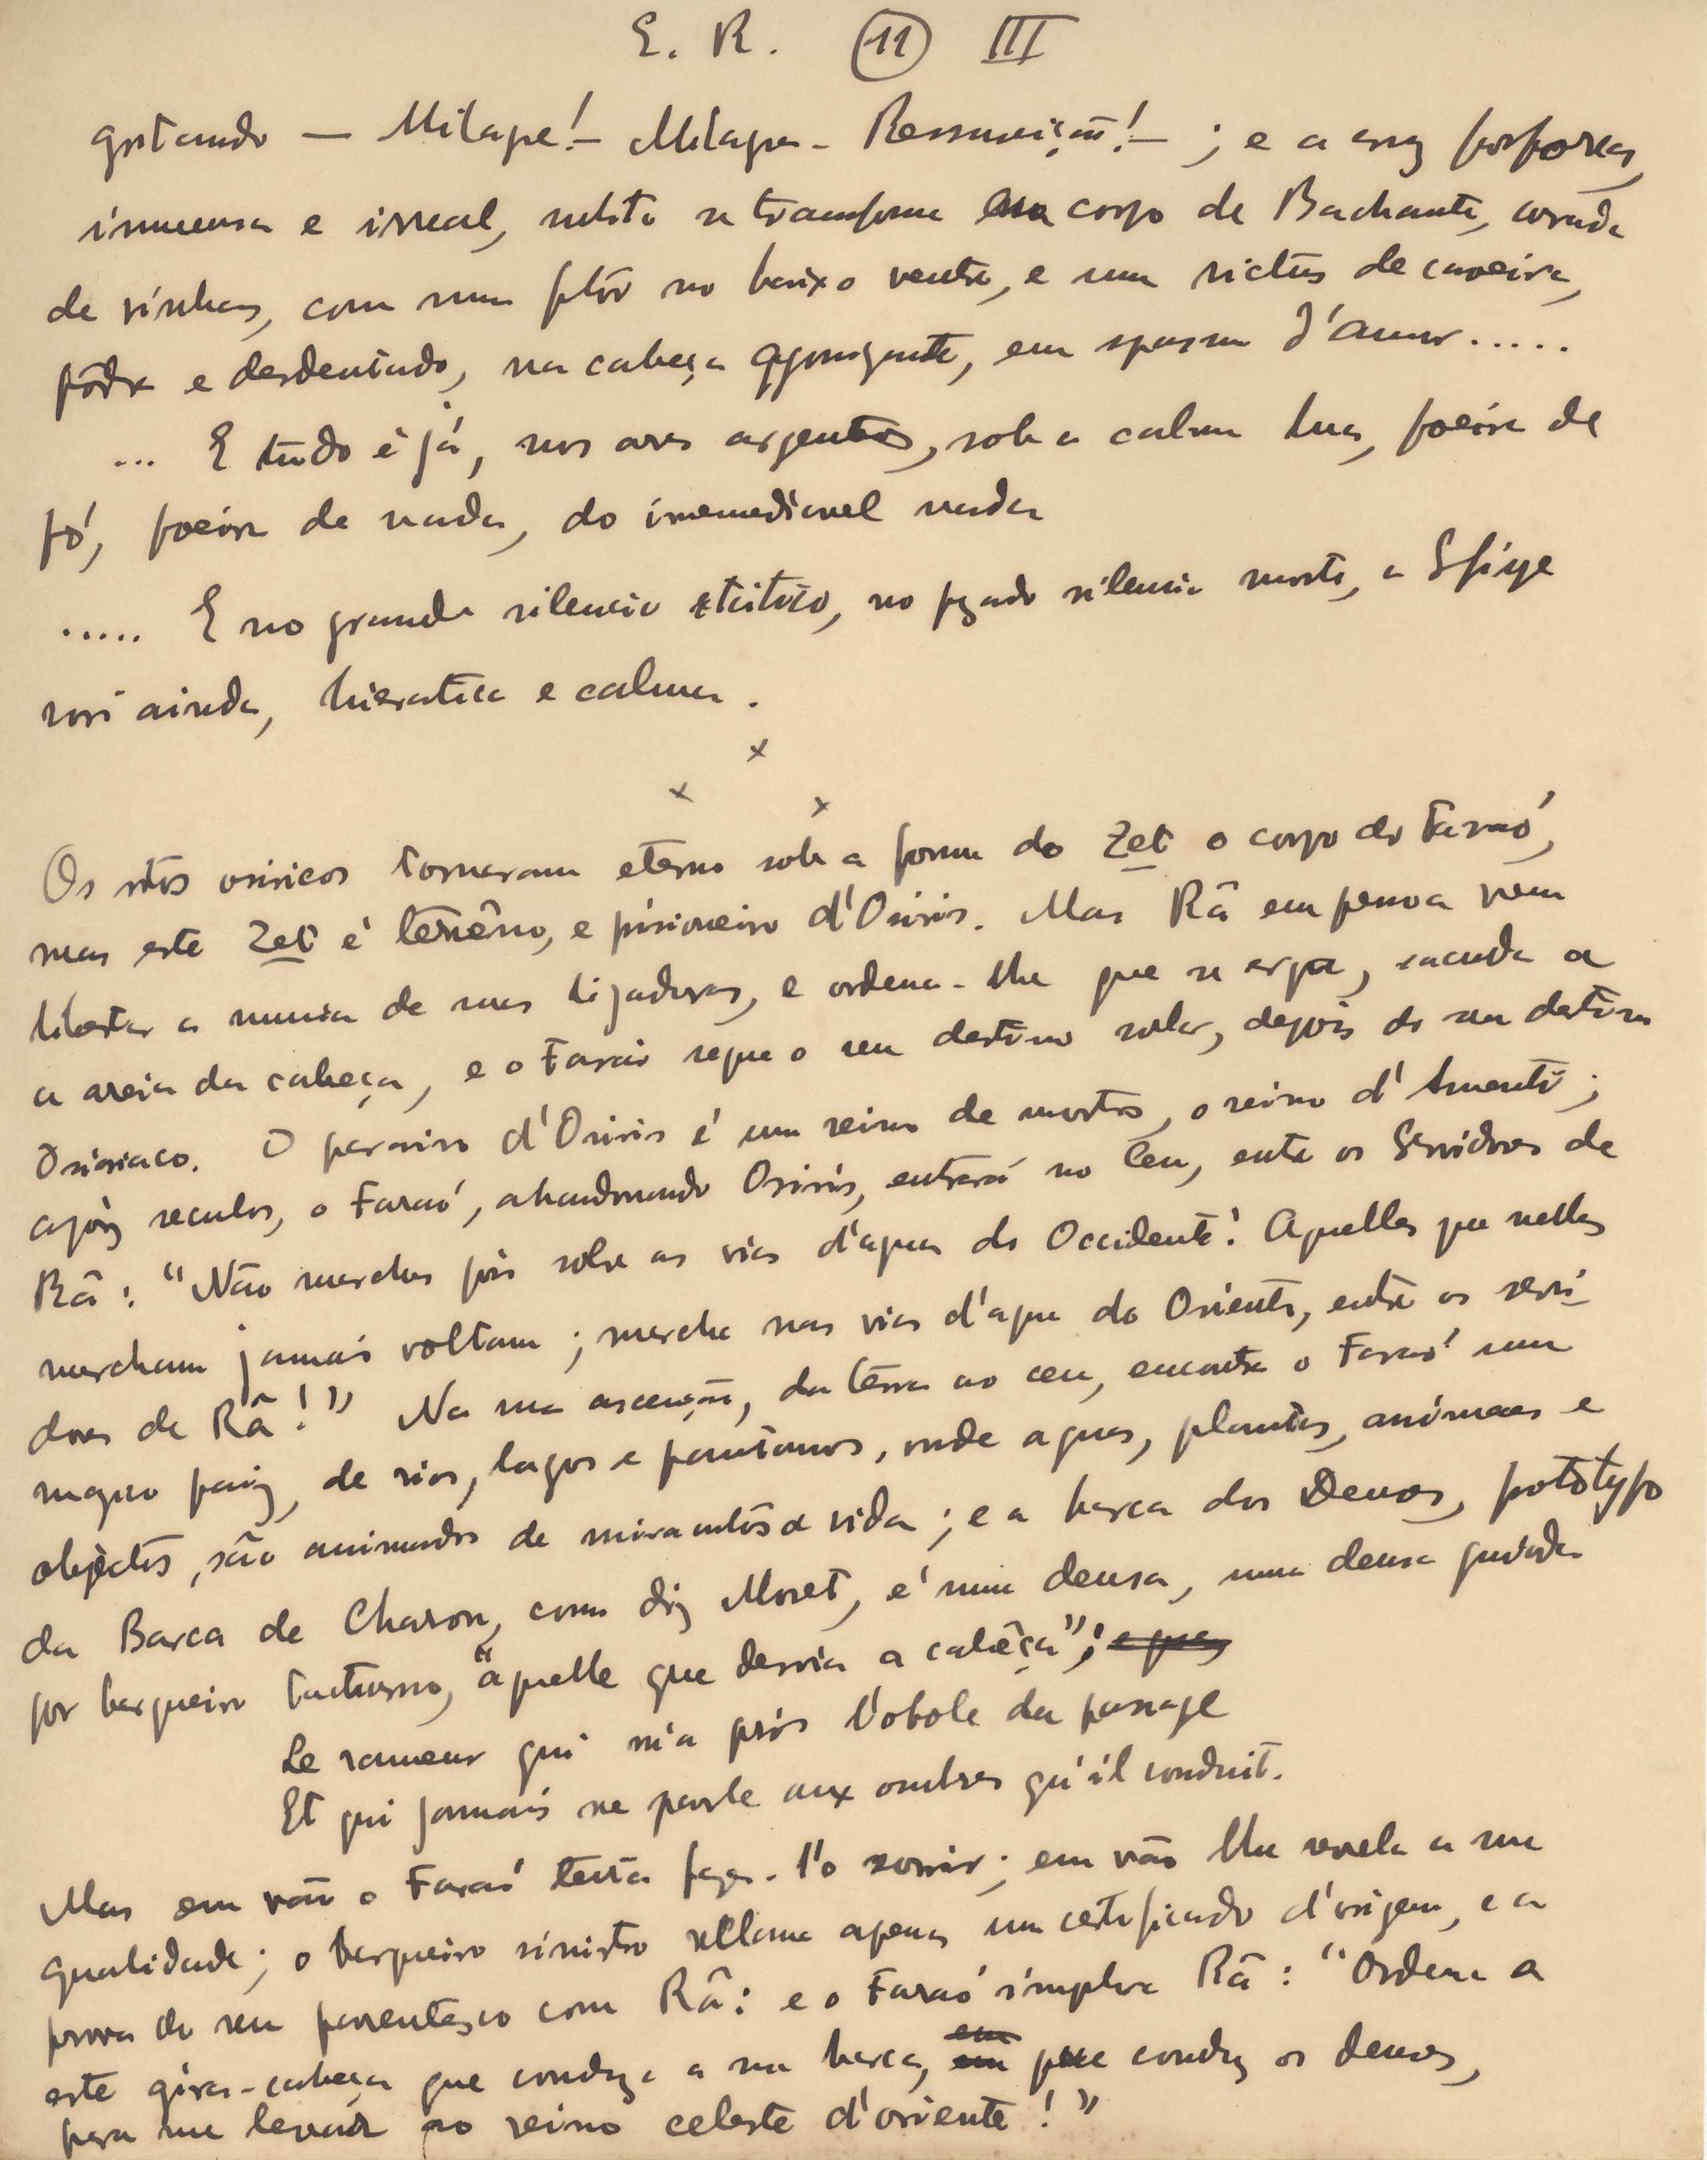 E. R. (11) III
gritando — Milagre! — Milagre - Ressureição! — ; e a cruz
immensa e irreal, subito se transforma em corpo de Bachante, coroada
de vinhas, com um no baixo ventre, e um rictus de caveira,
pôdre e desdentado, na cabeça agonizante, em spasmo d'amor.....
... E tudo é já, nos ares argenteos, sob a calma lua, poeira de
pó, poeira de nada, do irremediavel nada
..... E no grande silencio, no pezado silencio morto, a Sfinge
sorri ainda, hieratica e calma.
x
x x
Os ritos osiricos tornaram eterno sob a forma do Zet o corpo do Faraó,
mas este Zet é terrêno, e prisioneiro d'Osiris. Mas Râ em pessoa vem
libertar a mumia de suas ligaduras, e ordena-lhe que se erga, sacuda a
a areia da cabeça, e o Faraó segue o seu destino solar, depois do seu destino
Osiriaco. O paraiso d'Osiris é um reino de mortos, o reino d'Amenti;
após seculos, o Faraó, abandonando Osiris, entrará no Ceu, entre os Servidores de
Râ: "Não marches pois sobre as vias d'agua do Occidente! Aquelles que nellas
marcham jamais voltam; marcha nas vias d'agua do Oriente, entre os servi-
dores de Râ!" Na sua ascenção, da terra ao ceu, encontra o Faraó um
magno paiz, de rios, lagos e pantanos, onde aguas, plantas, animaes e
objectos, são animados de miraculosa vida; e a barca dos Deuses, prototypo
da Barca de Charon, como diz Moret, é uma deusa, uma deusa guiada
por barqueiro taciturno, "aquelle que desvia a cabêça";
Le rameur qui m'a pris l'obole du passage
Et qui jamais ne parle aux ombres qu'il conduit.
Mas em vão o Faraó tenta faze-l'o sorrir; em vão lhe revela a sua
qualidade; o barqueiro sinistro reclama apenas um certificado d'origem, e a
prova do seu parentesco com Râ: e o Faraó implora Râ: "Ordena a
este gira-cabeça que conduza a sua barca, em que conduz os deuses,
para me levar ao reino celeste d'oriente!"